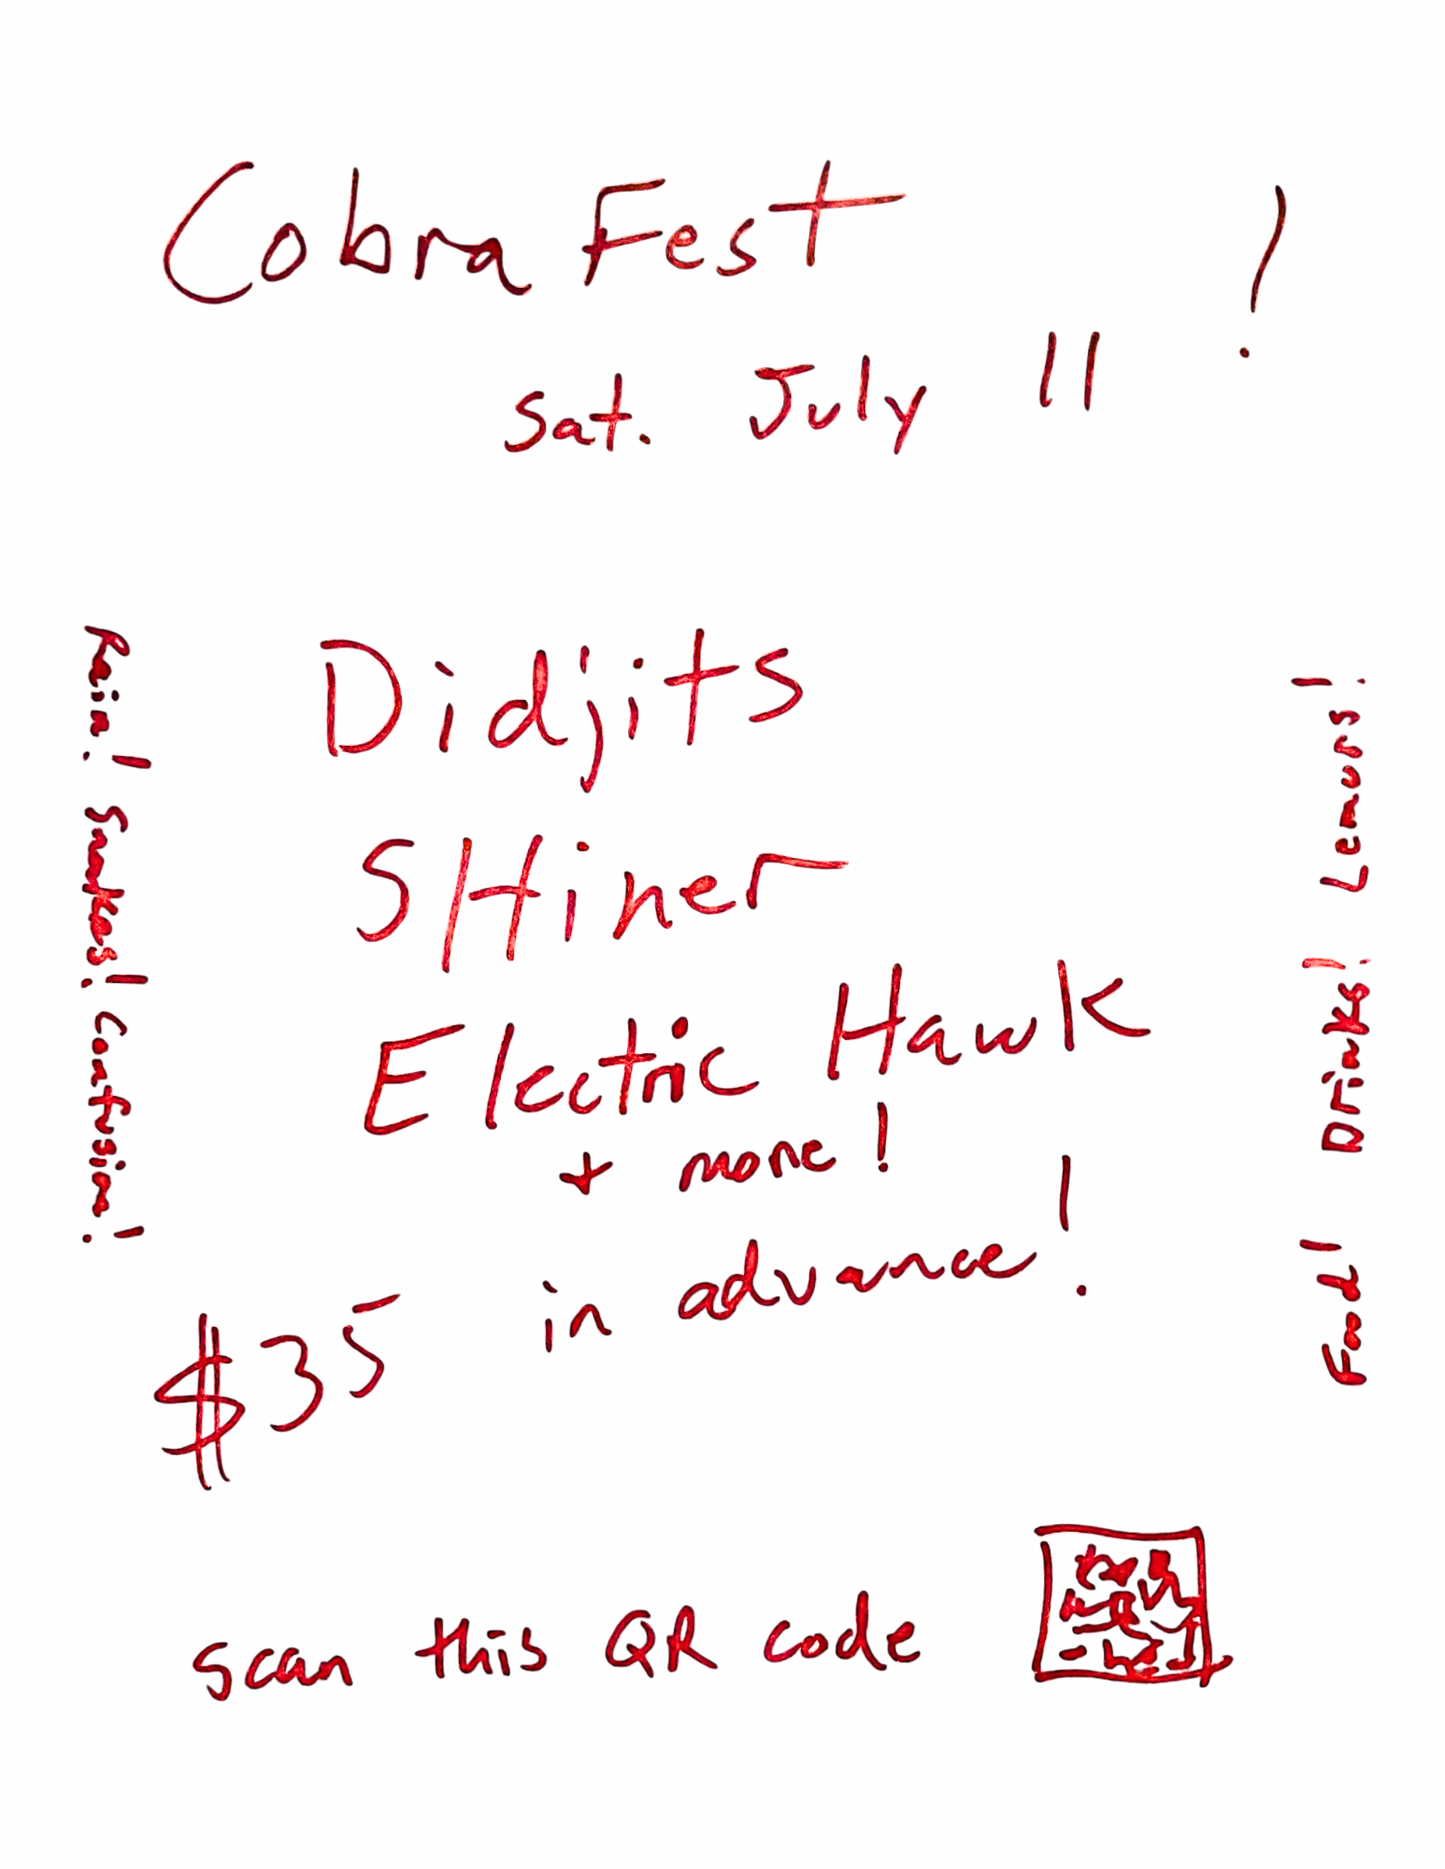 Cobra Fest !
Sat. July 11
Rain! Snakes! Confusion!
Didjits
SHiner
Electric Hawk
+ more!
$35 in advance!
Food! Drinks! Lemurs!
scan this QR code